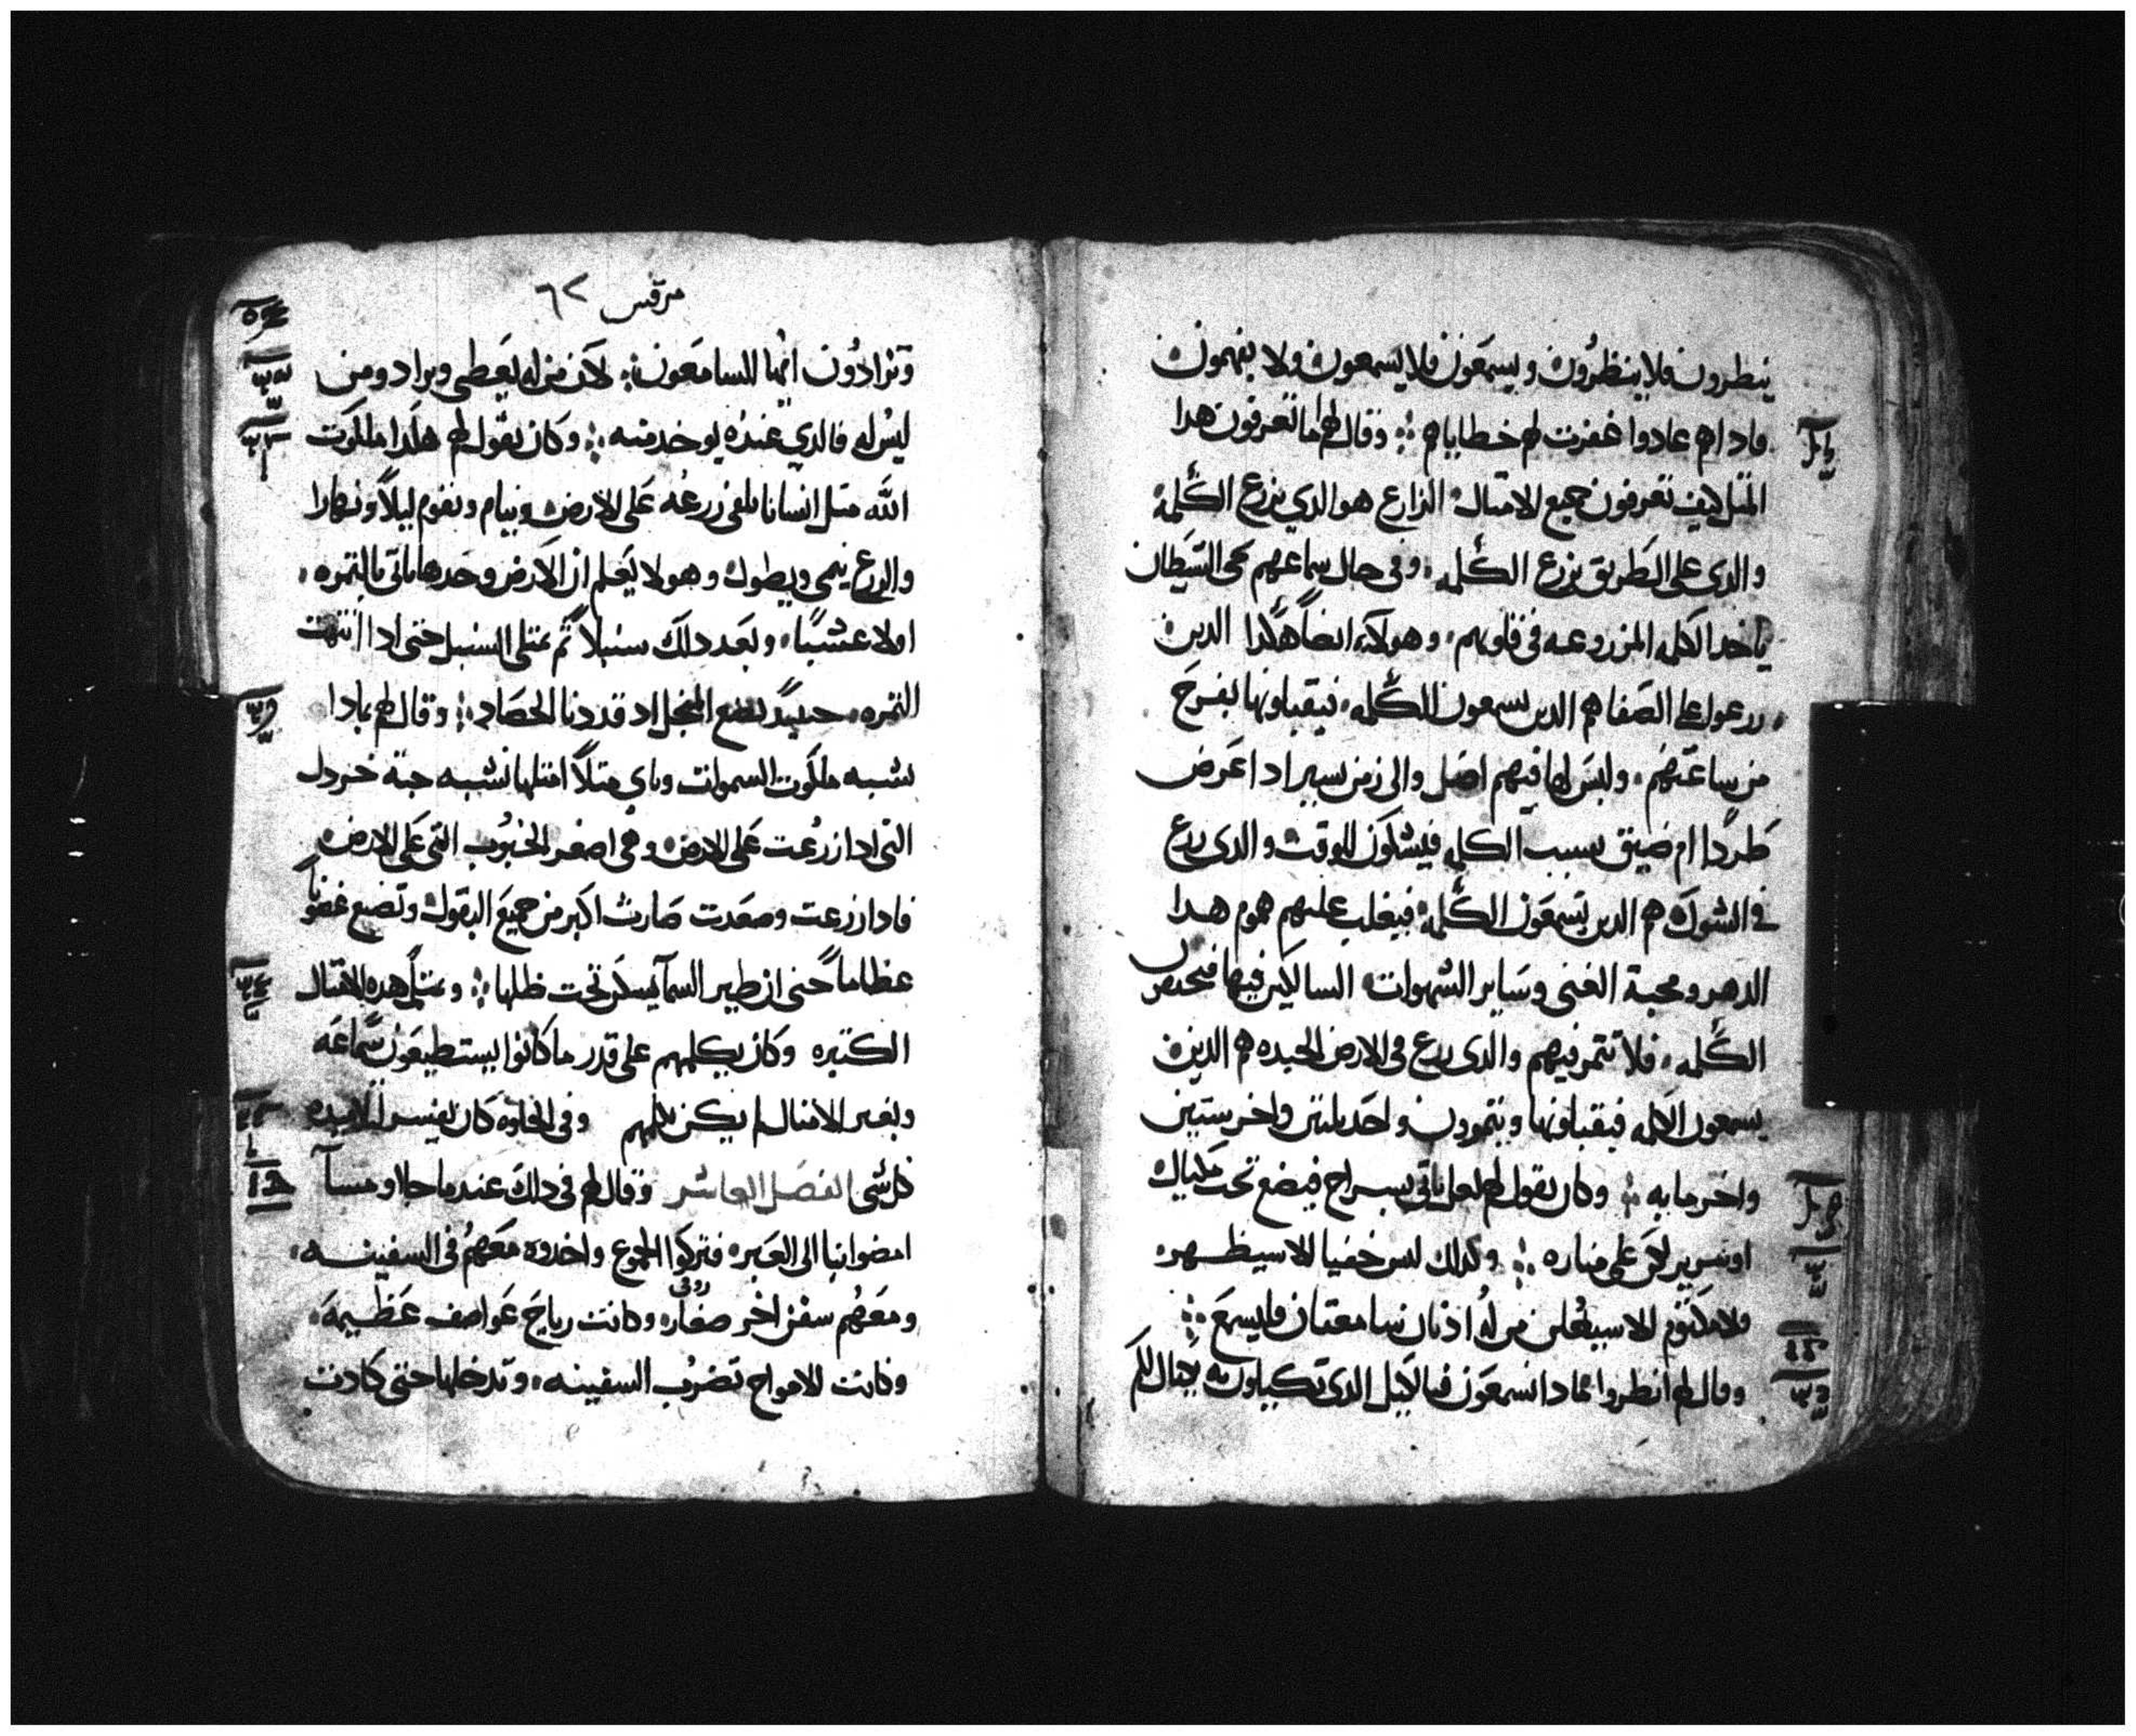 ينطرون فلا ينظرون ويسمعون فلا يسمعون ولا يفهمون
فادا هم عادوا غفرت لهم خطاياهم وقال لهم اما تعرفون هدا
المتل كيف تعرفون جميع الامتال الزارع هو الدي يزرع الكلمة
والدى على الطريق يزرع الكلمه وفى حال سماعهم يحى الشيطان
ياخد الكلمه المزروعه فى قلوبهم وهولاء ايضاً هكدا الدين
زرعوا على الصفا هم الدين يسمعون الكلمه فيقبلونها بفرح
من ساعتهم وليس لها فيهم اصل والى زمن يسير ادا عرض
طردًا ام ضيق بسبب الكلمه فيشكون للوقت والدى زرع
فى الشوك هم الدين يسمعون الكلمة فيغلب عليهم هموم هدا
الدهر ومحبة الغنى وساير الشهوات السالكين فيها فتخنق
الكلمه فلا تتمر فيهم والدى زرع فى الارض الجيده هم الدين
يسمعون الكلمه فيقبلونها ويتمرون واحد تلتين واخر ستين
واخر مايه وكان يقول لهم لعل ياتى بسراج فيضع تحت مكيال
او سرير لكن على مناره وكدلك ليس خفيا الا سيظهر
ولا مكتوم الا سيعلن من له ادنان سامعتان فليسمع
وقال لهم انطروا مادا تسمعون فبالكيل الدى تكيلون به يكال لكم
مرقس ٦٢
وتزادون ايها السامعون لان من له يعطى ويزاد ومن
ليس له فالدي عنده يوخد منه وكان يقول لهم هكدا ملكوت
الله متل انسانا يلقى زرعه على الارض وينام ويقوم ليلاً ونهارا
والزرع ينمى ويطول وهو لا يعلم ان الارض وحدها تاتى بالتمره
اولا عشبًا وبعد دلك سنبلا تم يمتلى السنبل حتى ادا انتهت
التمره حينيدٍ يضع المنجل اد قد دنا الحصاد وقال لهم بمادا
نشبه ملكوت السموات وباي متلاً امتلها تشبه حبة خردل
التى ادا زرعت على الارض وهى اصغر الحبوب التى على الارض
فادا زرعت وصعدت صارت اكبر من جميع البقول وتضع غضونًا
عظاما حتى ان طير السما يسكن تحت ظلها وبمتل هده الامتال
الكتيره وكان يكلمهم على قدر ما كانوا يستطيعون سماعه
وبغير الامتال لم يكن يكلمهم وفى الخلوه كان يفسر لتلاميده
كل شى الفصل العاشر وقال لهم فى دلك عندما جلا ومسآ
امضوا بنا الى العبره فتركوا الجموع واخدوه معهم فى السفينه
ومعهم سفن اخر صغاره وكانت رياح عواصف عظيمه
وكانت الامواج تضرب السفينه وتدخلها حتى كادت